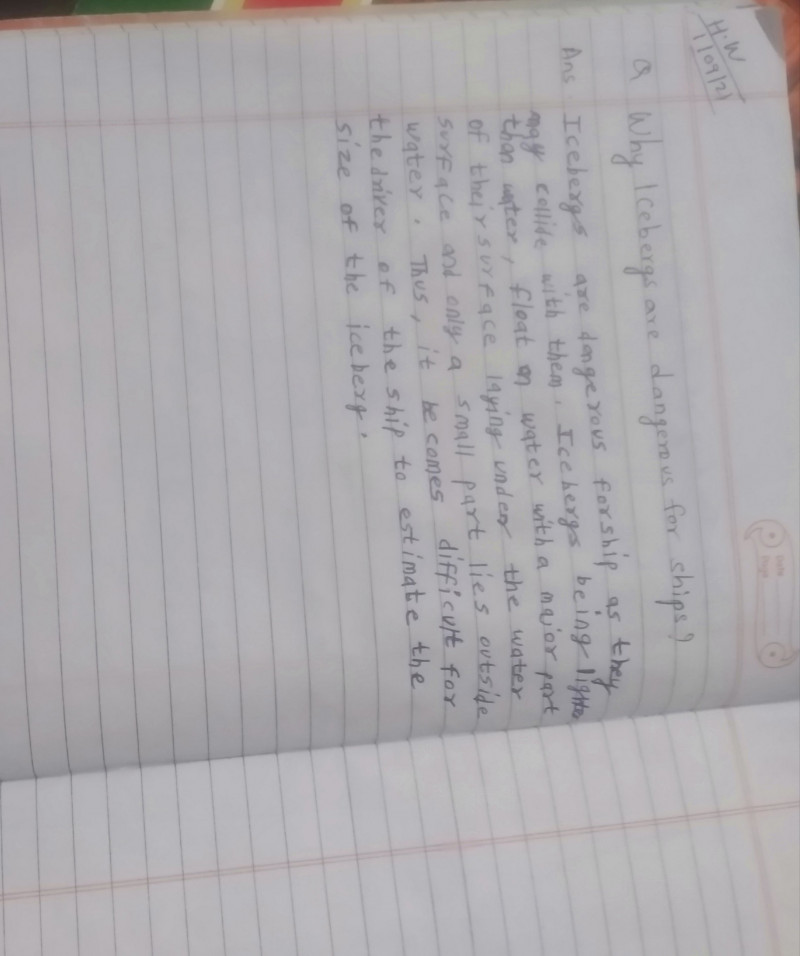 H.W
1/09/21
Q Why Icebergs are dangerous for ships?
Ans Icebergs are dangerous for ship as they
may collide with them. Icebergs being lighter
than water, float on water with a major part
of their surface laying under the water
surface and only a small part lies outside
water. Thus, it becomes difficult for
the driver of the ship to estimate the
size of the iceberg.